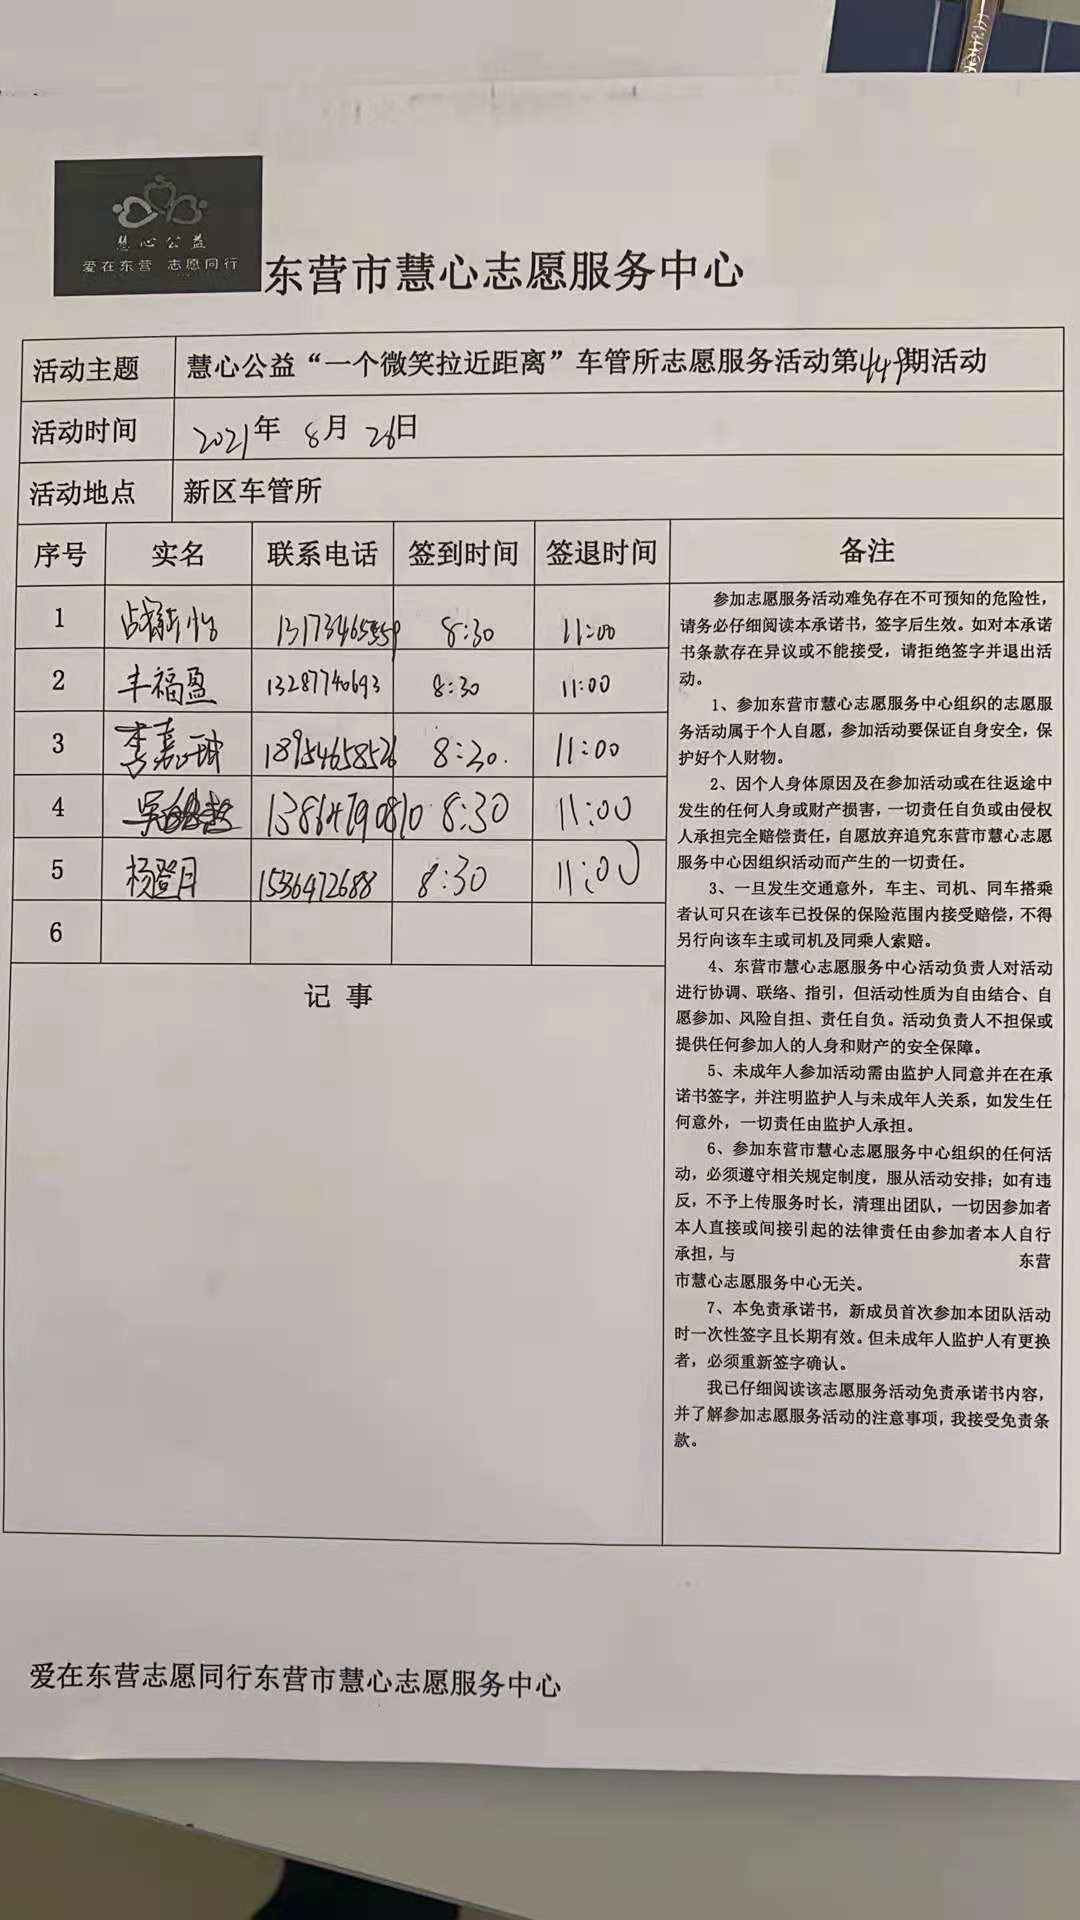 慧心公益
爱在东营 志愿同行
东营市慧心志愿服务中心
活动主题 慧心公益“一个微笑拉近距离”车管所志愿服务活动第449期活动
活动时间 2021年 8月 26日
活动地点 新区车管所
序号 实名 联系电话 签到时间 签退时间 备注
1 8:30 11:00
2 丰福盈 13287740693 8:30 11:00
3 18954658526 8:30. 11:00
4 13864790810 8:30 11:00
5 杨登月 15336472688 8:30 11:00
6
记 事
参加志愿服务活动难免存在不可预知的危险性，
请务必仔细阅读本承诺书，签字后生效。如对本承诺
书条款存在异议或不能接受，请拒绝签字并退出活
动。
1、参加东营市慧心志愿服务中心组织的志愿服
务活动属于个人自愿，参加活动要保证自身安全，保
护好个人财物。
2、因个人身体原因及在参加活动或在往返途中
发生的任何人身或财产损害，一切责任自负或由侵权
人承担完全赔偿责任，自愿放弃追究东营市慧心志愿
服务中心因组织活动而产生的一切责任。
3、一旦发生交通意外，车主、司机、同车搭乘
者认可只在该车已投保的保险范围内接受赔偿，不得
另行向该车主或司机及同乘人索赔。
4、东营市慧心志愿服务中心活动负责人对活动
进行协调、联络、指引，但活动性质为自由结合、自
愿参加、风险自担、责任自负。活动负责人不担保或
提供任何参加人的人身和财产的安全保障。
5、未成年人参加活动需由监护人同意并在在承
诺书签字，并注明监护人与未成年人关系，如发生任
何意外，一切责任由监护人承担。
6、参加东营市慧心志愿服务中心组织的任何活
动，必须遵守相关规定制度，服从活动安排；如有违
反，不予上传服务时长，清理出团队，一切因参加者
本人直接或间接引起的法律责任由参加者本人自行
承担，与 东营
市慧心志愿服务中心无关。
7、本免责承诺书，新成员首次参加本团队活动
时一次性签字且长期有效。但未成年人监护人有更换
者，必须重新签字确认。
我已仔细阅读该志愿服务活动免责承诺书内容，
并了解参加志愿服务活动的注意事项，我接受免责条
款。
爱在东营志愿同行东营市慧心志愿服务中心